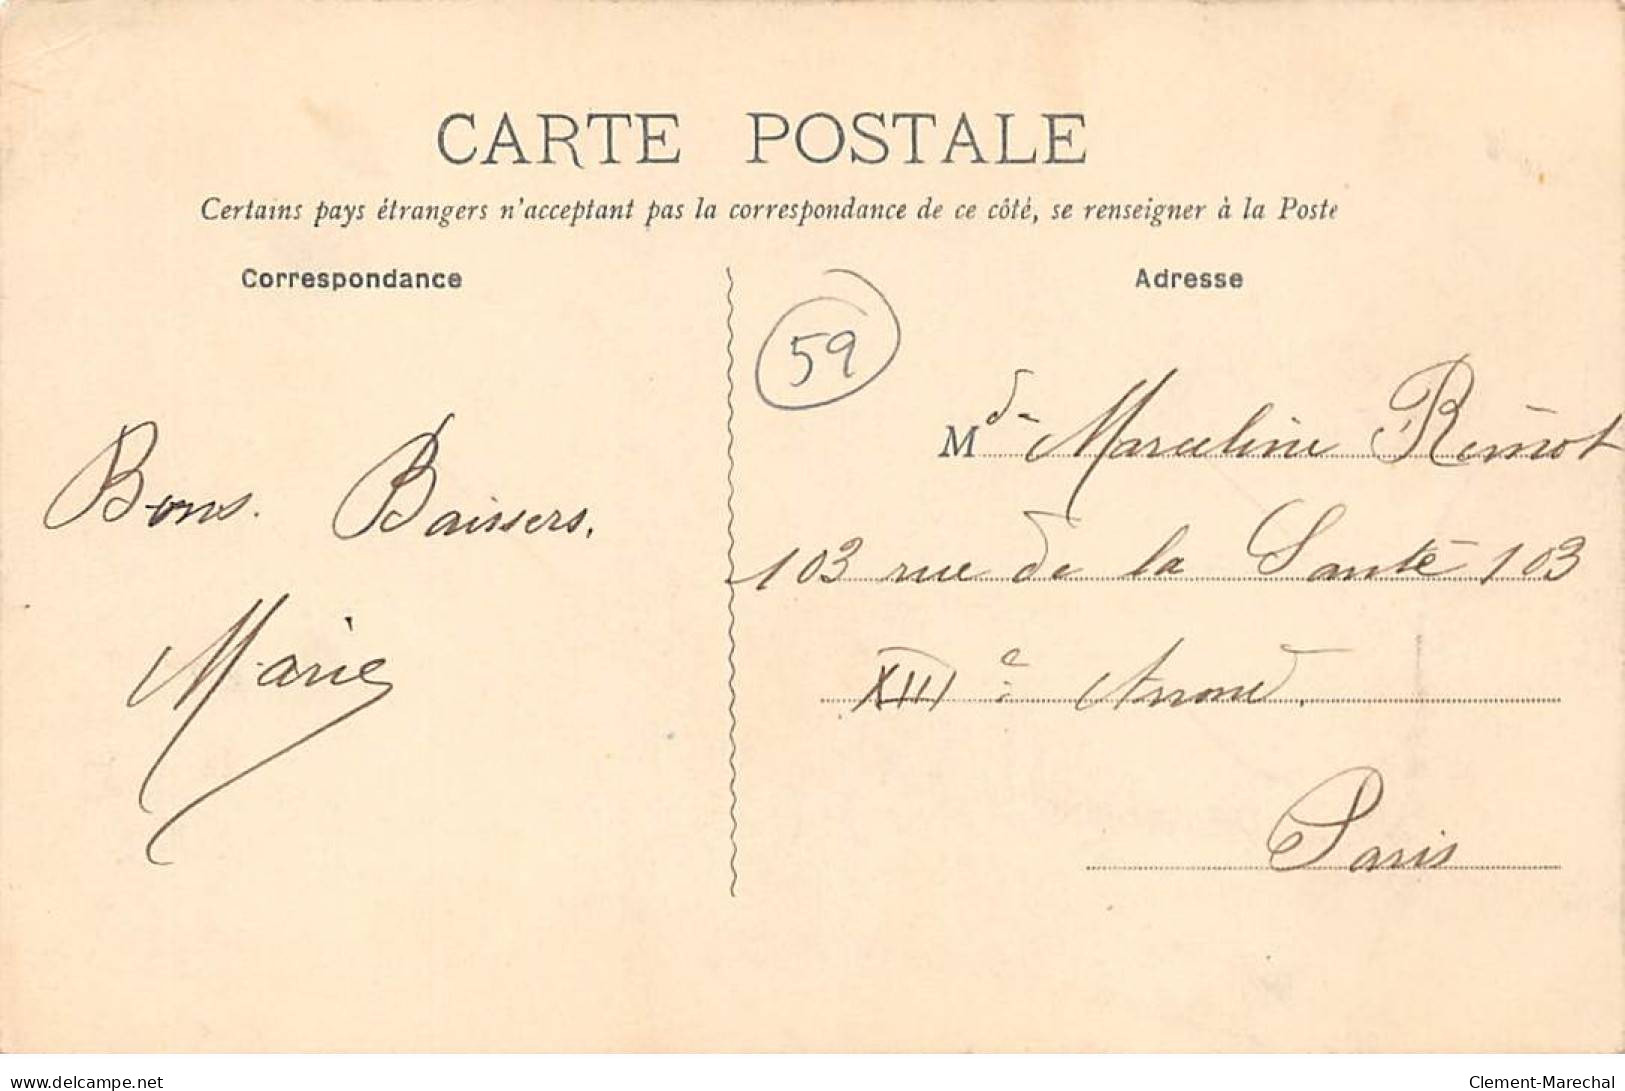 CARTE POSTALE
Certains pays étrangers n'acceptant pas la correspondance de ce côté, se renseigner à la Poste
Correspondance
Adresse
59
Bons. Baisers.
Marie
Md Marceline
103 rue de la Santé 103
XIIIe Arrond.
Paris
https://www.delcampe.net
Clement-Marechal